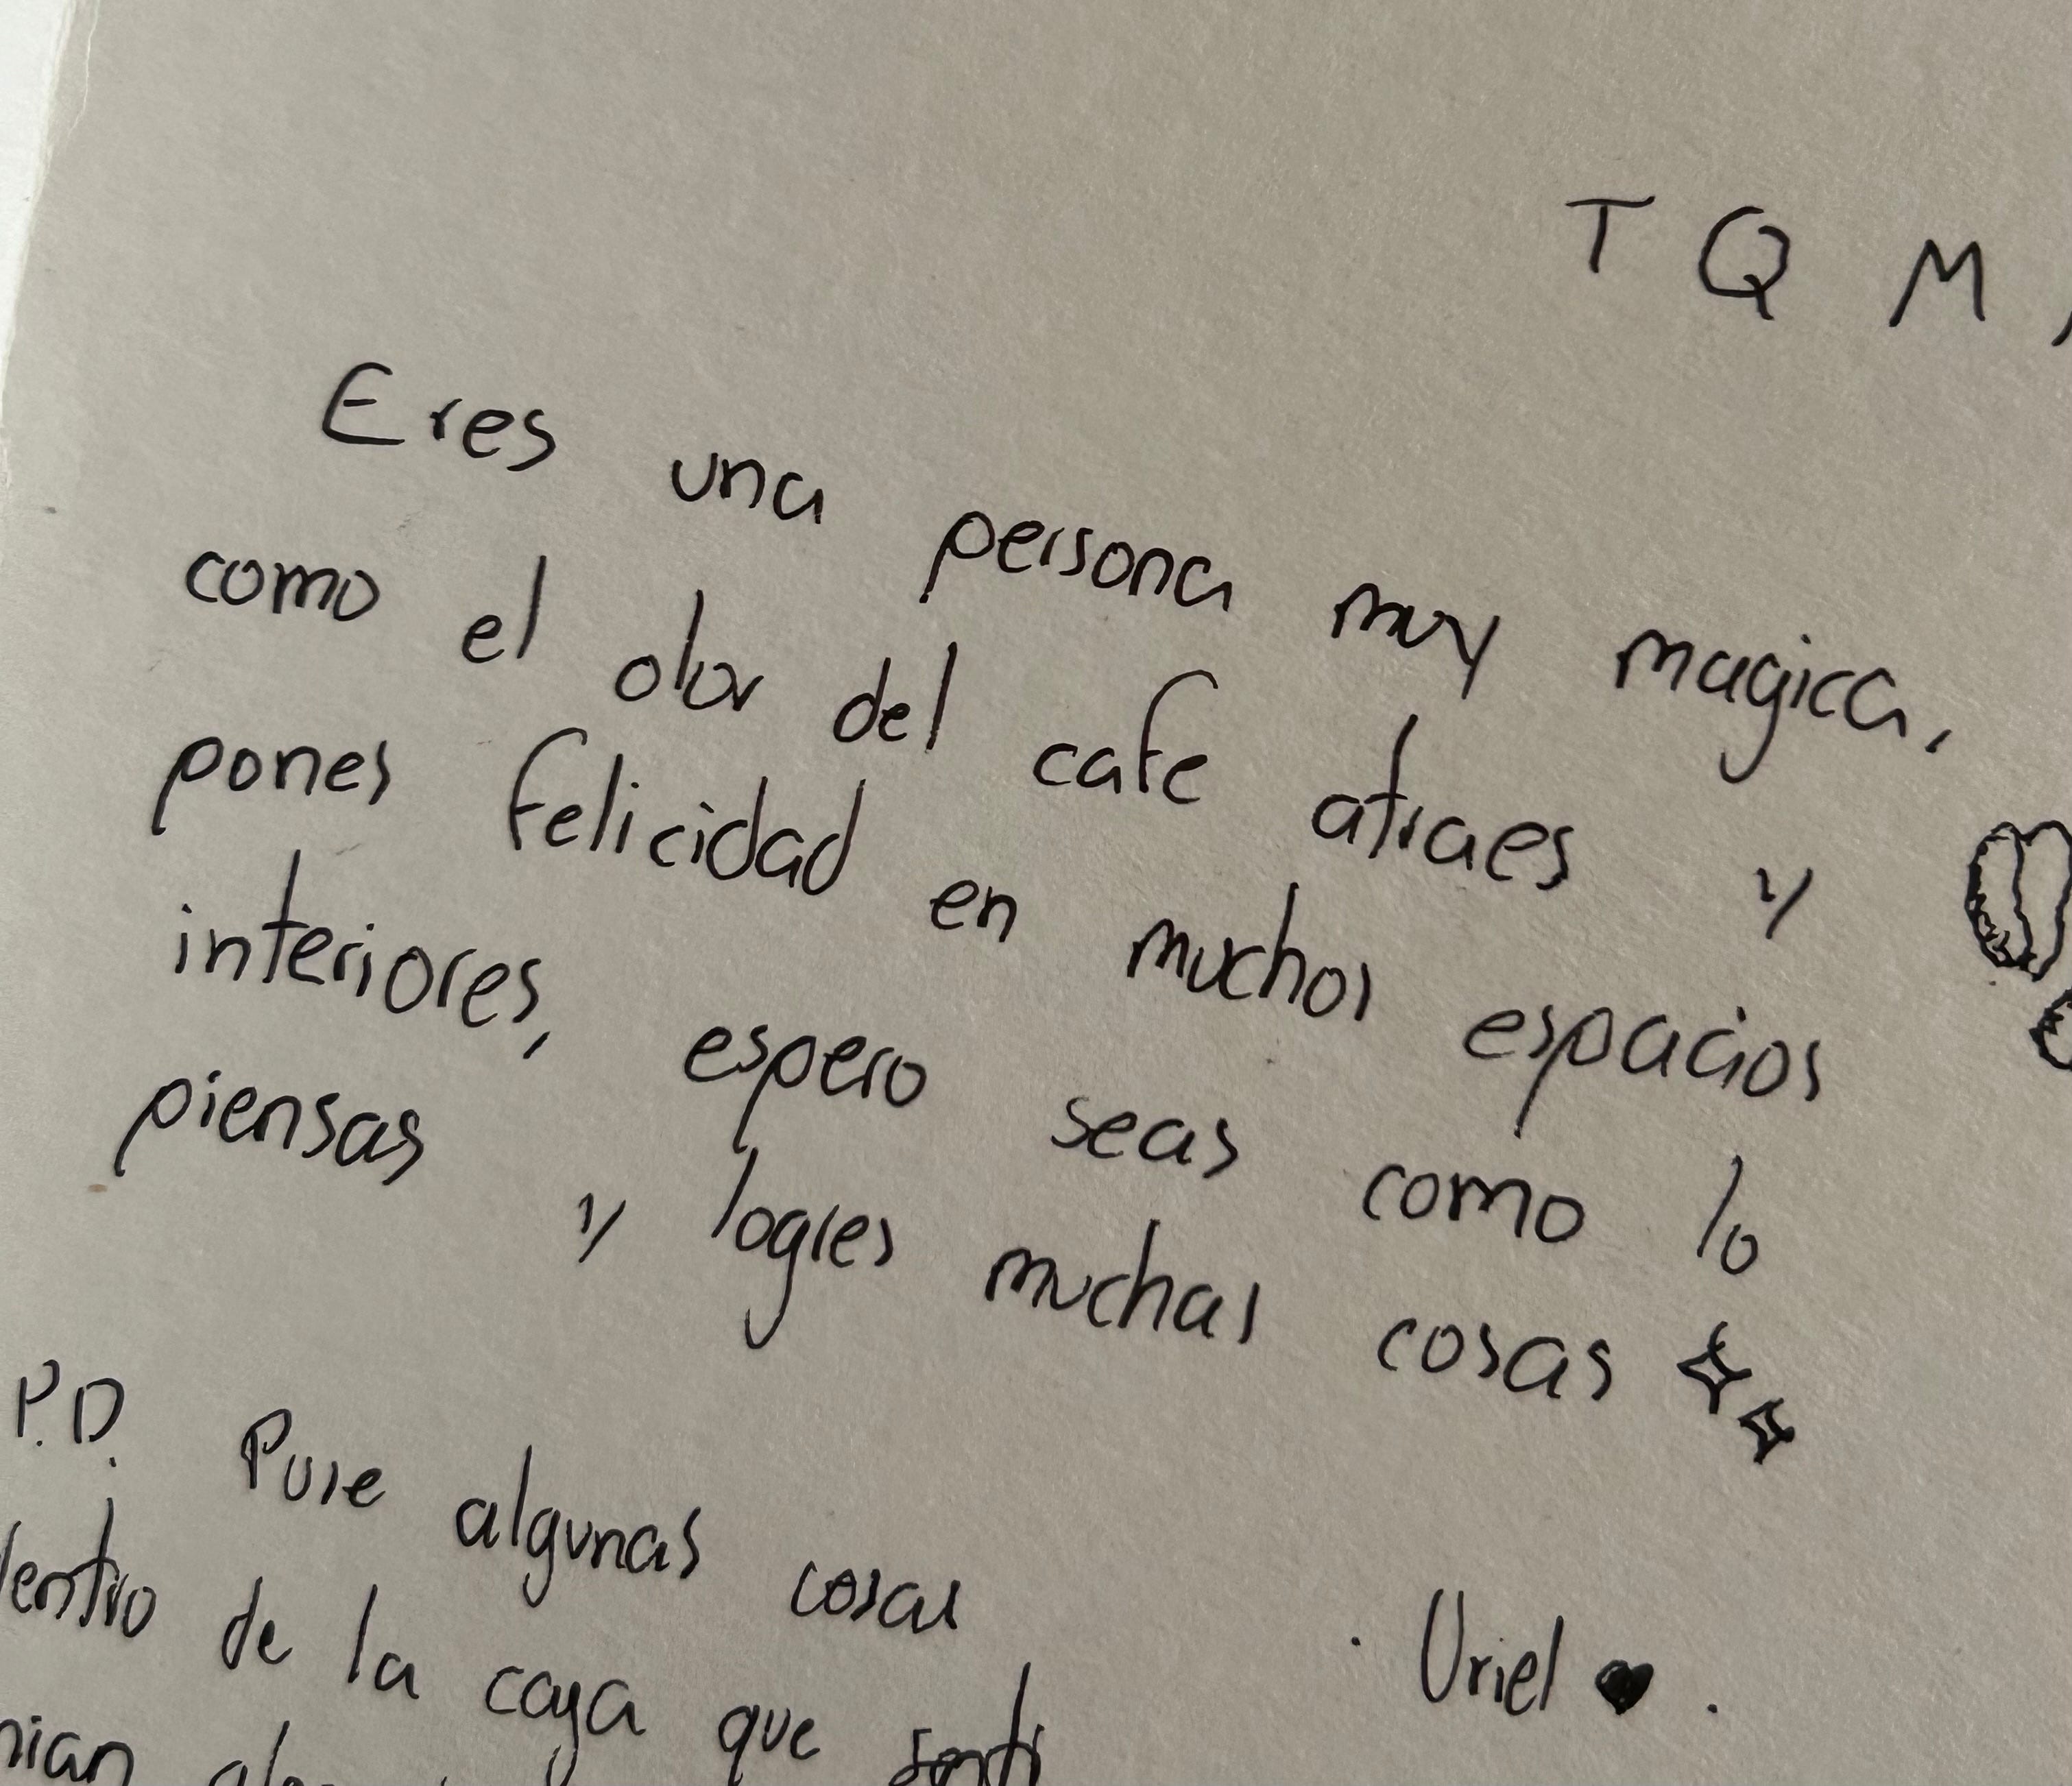 TQM,
Eres una persona muy magica,
como el olor del cafe atraes y
pones felicidad en muchos espacios
interiores, espero seas como lo
piensas y logres muchas cosas
P.D. Puse algunas cosas
dentro de la caja que sentí
Uriel